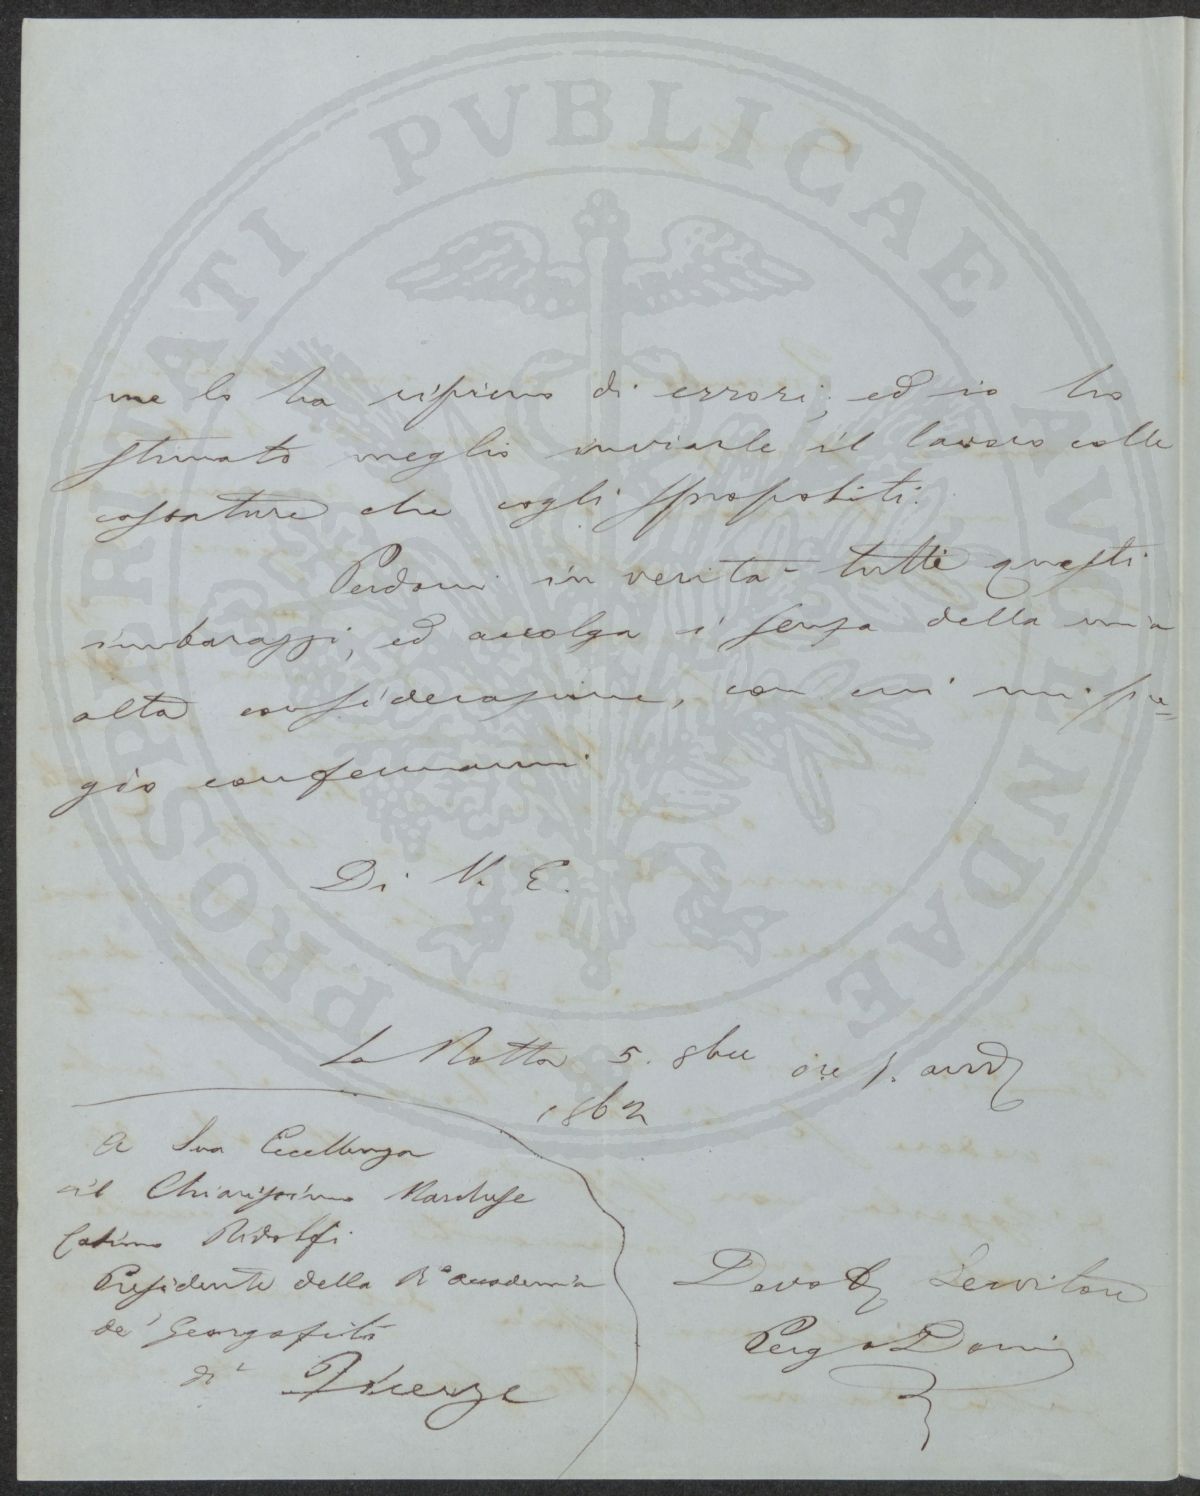 PROSPERITATI PVBLICAE AVGENDAE
me lo ha ripieno di errori; ed io ho
stimato meglio inviarle il lavoro colle
cassature che cogli spropositi.
Perdoni in verità tutti questi
imbarazzi, ed accolga i sensi della mia
alta considerazione, con cui mi pre=
gio confermarmi
Di V. E.
La Rotta 5. 8bre ore 1. and
1862
A Sua Eccellenza
il Chiarissimo Marchese
Cosimo Ridolfi
Presidente della Ra accademia
de' Georgofili
di Firenze
Devot Servitore